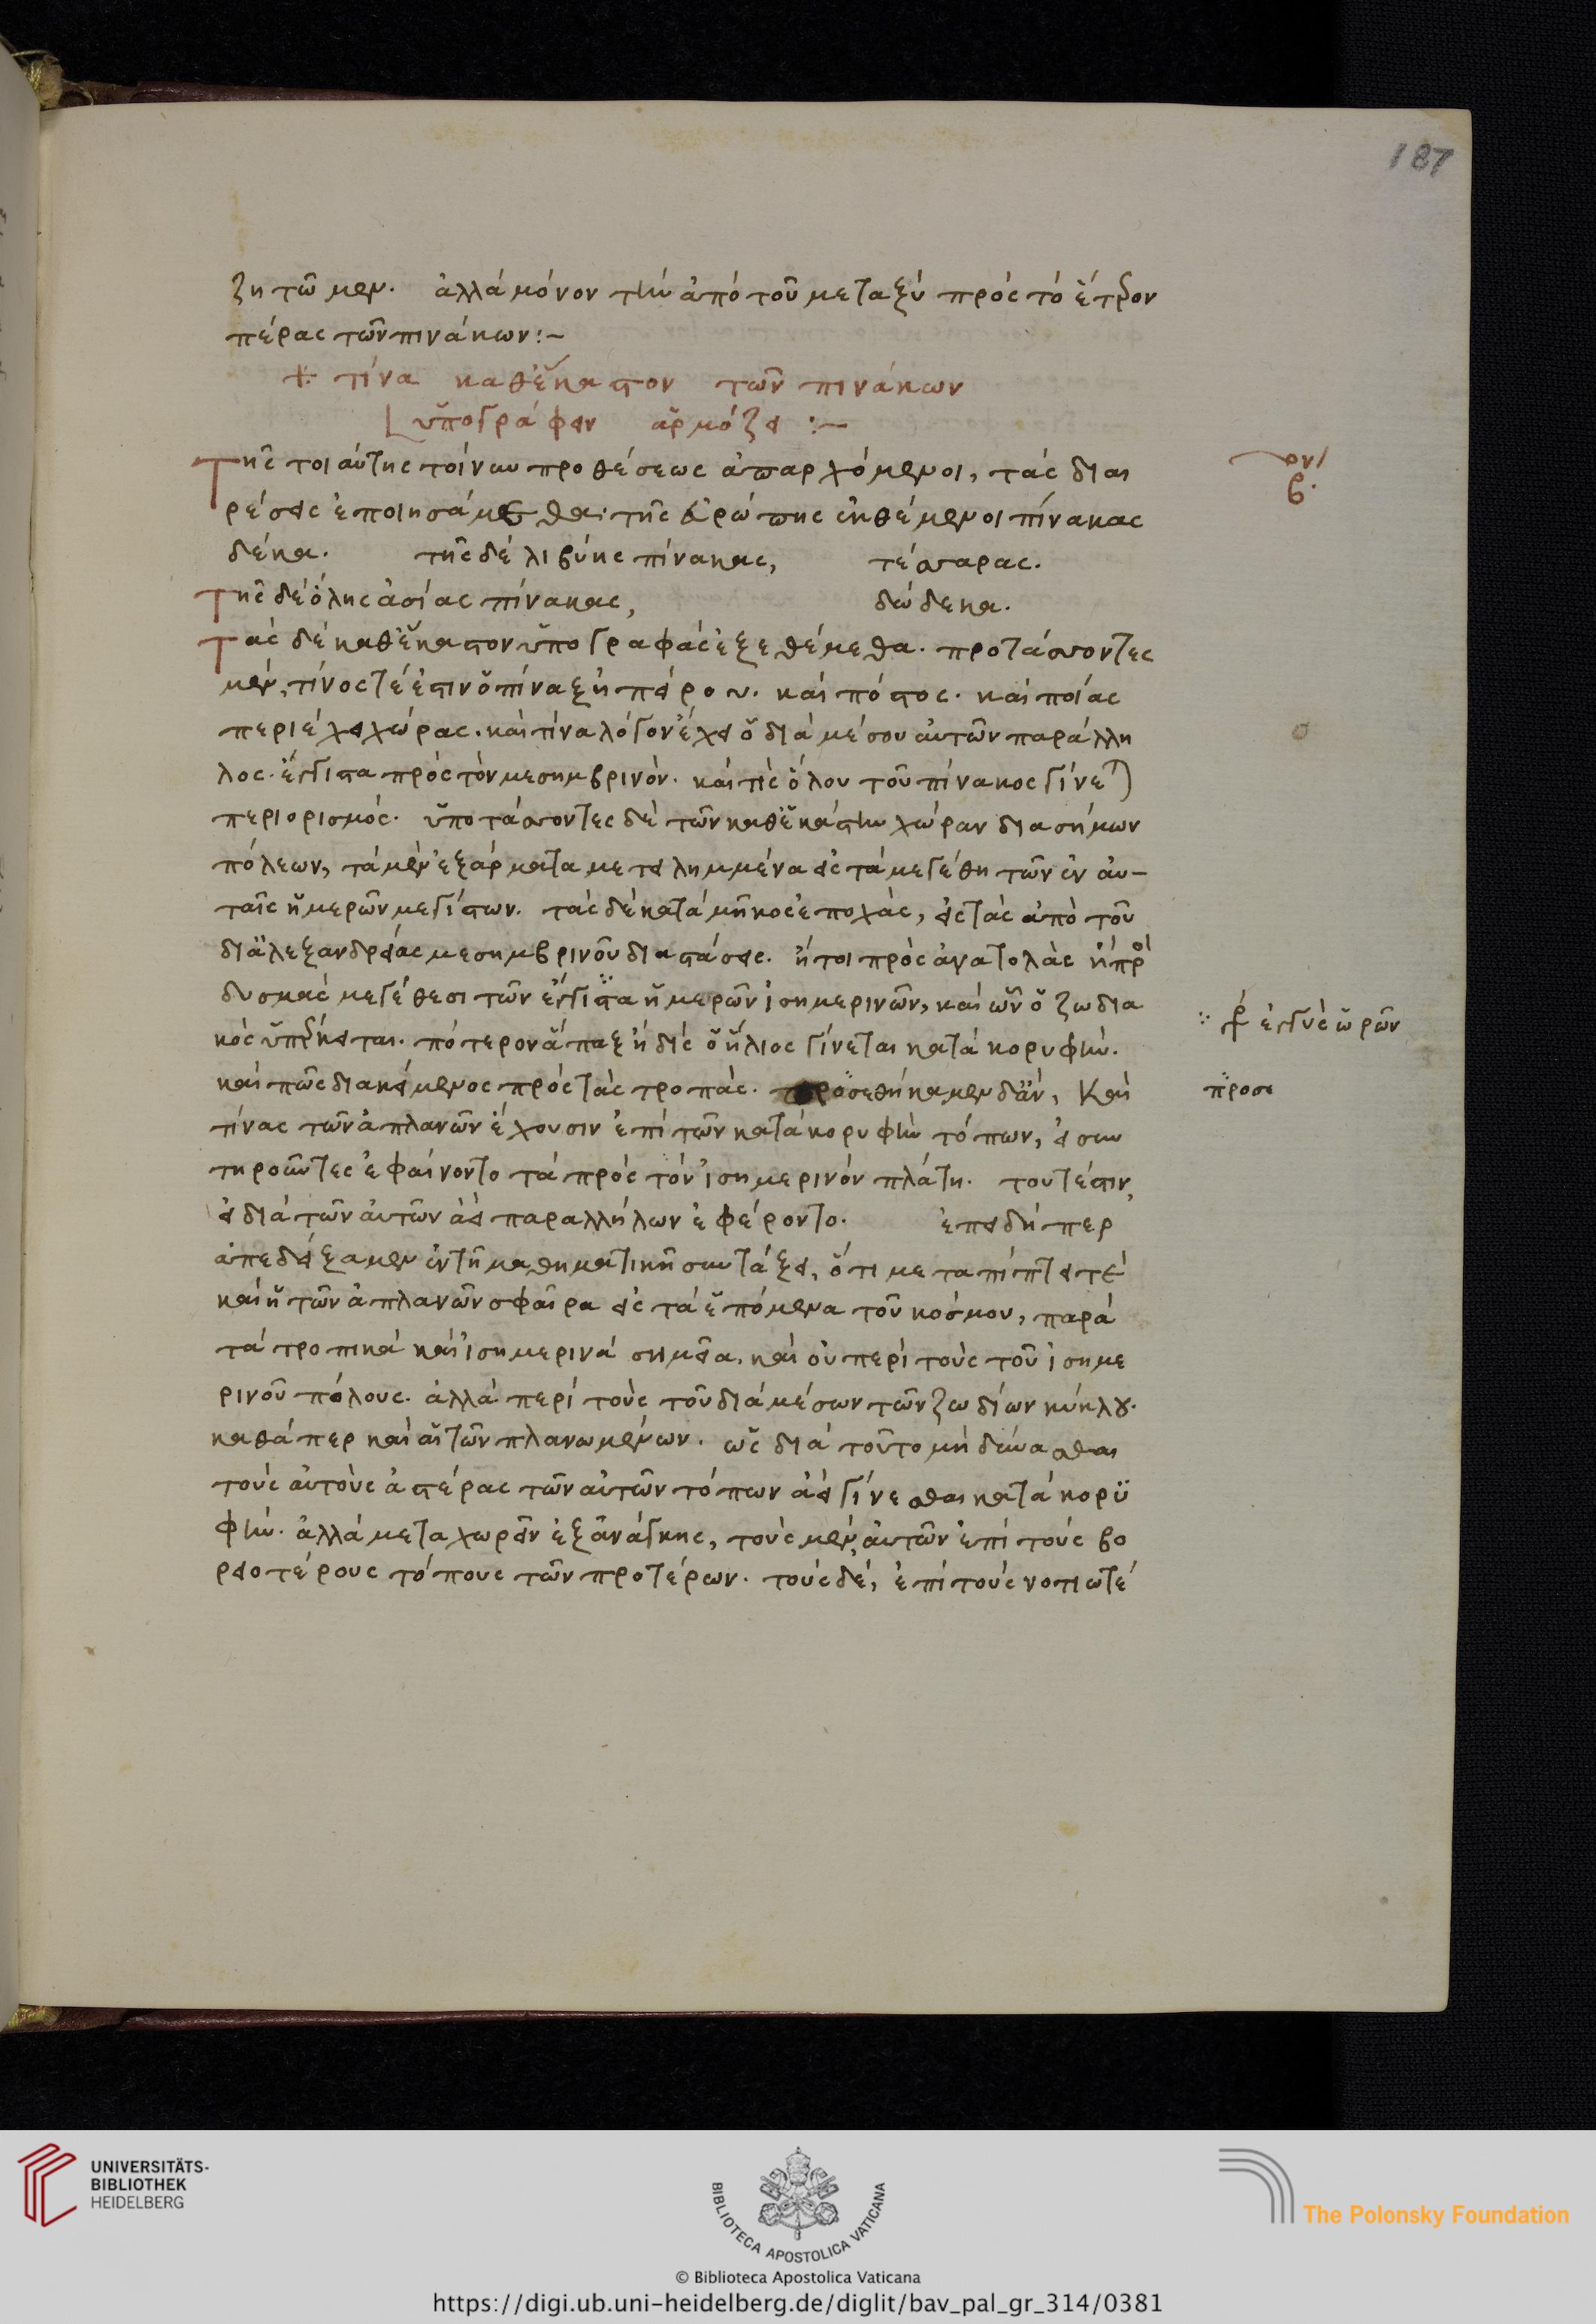 187
ζητῶμεν. ἀλλὰ μόνον τὴν ἀπὸ τοῦ μεταξὺ πρὸς τὸ ἕτερον
πέρας τῶν πινάκων:-
+ τίνα καθ' ἕκαστον τῶν πινάκων
ὑπογράφειν ἁρμόζει :-
Τῆς τοιαύτης τοίνυν προθέσεως ἀπαρχόμενοι, τὰς διαι
ρέσεις ἐποιησάμεθα· τῆς εὐρώπης ἐκθέμενοι πίνακας
δέκα. τῆς δὲ λιβύης πίνακας, τέσσαρας.
Τῆς δὲ ὅλης ἀσίας πίνακας, δώδεκα.
Τὰς δὲ καθ' ἕκαστον ὑπογραφὰς ἐξεθέμεθα. προτάσσοντες
μὲν, τίνος τέ ἐστιν ὁ πίναξ ἠπείρου. καὶ πόστος. καὶ ποίας
περιέχει χώρας. καὶ τίνα λόγον ἔχει ὁ διὰ μέσου αὐτῶν παράλλη
λος. ἔγγιστα πρὸς τὸν μεσημβρινόν. καὶ τίς ὅλου τοῦ πίνακος γίνεται
περιορισμός. ὑποτάσσοντες δὲ τῶν καθ' ἑκάστην χώραν διασήμων
πόλεων, τὰ μὲν ἐξάρματα μετειλημμένα εἰς τὰ μεγέθη τῶν ἐν αυ-
ταῖς ἡμερῶν μεγίστων. τὰς δὲ κατὰ μῆκος ἐποχὰς, εἰς τὰς ἀπὸ τοῦ
δι' ἀλεξανδρείας μεσημβρινοῦ διαστάσεις. ἤτοι πρὸς ἀνατολὰς ἢ πρὸς
δυσμὰς μεγέθεσι τῶν ἔγγιστα ἡμερῶν ἰσημερινῶν, καὶ ὧν ὁ ζωδια
∴ γρ ἐγγὺς ὡρῶν
κὸς ὑπέρκειται. πότερον ἅπαξ ἢ δὶς ὁ ἥλιος γίνεται κατὰ κορυφήν.
καὶ πῶς διακείμενος πρὸς τὰς τροπάς. προσεθήκαμεν δ' ἂν, καὶ
προσε
τίνας τῶν ἀπλανῶν ἔχουσιν ἐπὶ τῶν κατὰ κορυφὴν τόπων, εἰ συν
τηροῦντες ἐφαίνοντο τὰ πρὸς τὸν ἰσημερινὸν πλάτη. τουτέστιν,
εἰ διὰ τῶν αὐτῶν ἀεὶ παραλλήλων ἐφέροντο. ἐπειδήπερ
ἀπεδείξαμεν ἐν τῇ μαθηματικῇ συντάξει, ὅτι μεταπίπτει τὲ
καὶ ἡ τῶν ἀπλανῶν σφαῖρα εἰς τὰ ἑπόμενα τοῦ κόσμου, παρὰ
τὰ τροπικὰ καὶ ἰσημερινὰ σημεῖα. καὶ οὐ περὶ τοὺς τοῦ ἰσημε
ρινοῦ πόλους. ἀλλὰ περὶ τοὺς τοῦ διὰ μέσων τῶν ζωδίων κύκλου.
καθάπερ καὶ αἱ τῶν πλανωμένων. ὡς διὰ τοῦτο μὴ δύνασθαι
τοὺς αὐτοὺς ἀστέρας τῶν αὐτῶν τόπων ἀεὶ γίνεσθαι κατὰ κορυ
φήν. ἀλλὰ μεταχωρεῖν ἐξ ἀνάγκης, τοὺς μὲν, αὐτῶν ἐπὶ τοὺς βο
ρειοτέρους τόπους τῶν προτέρων. τοὺς δὲ, ἐπὶ τοὺς νοτιωτέ
UNIVERSITÄTS-
BIBLIOTHEK
HEIDELBERG
BIBLIOTECA APOSTOLICA VATICANA
The Polonsky Foundation
© Biblioteca Apostolica Vaticana
https://digi.ub.uni-heidelberg.de/diglit/bav_pal_gr_314/0381